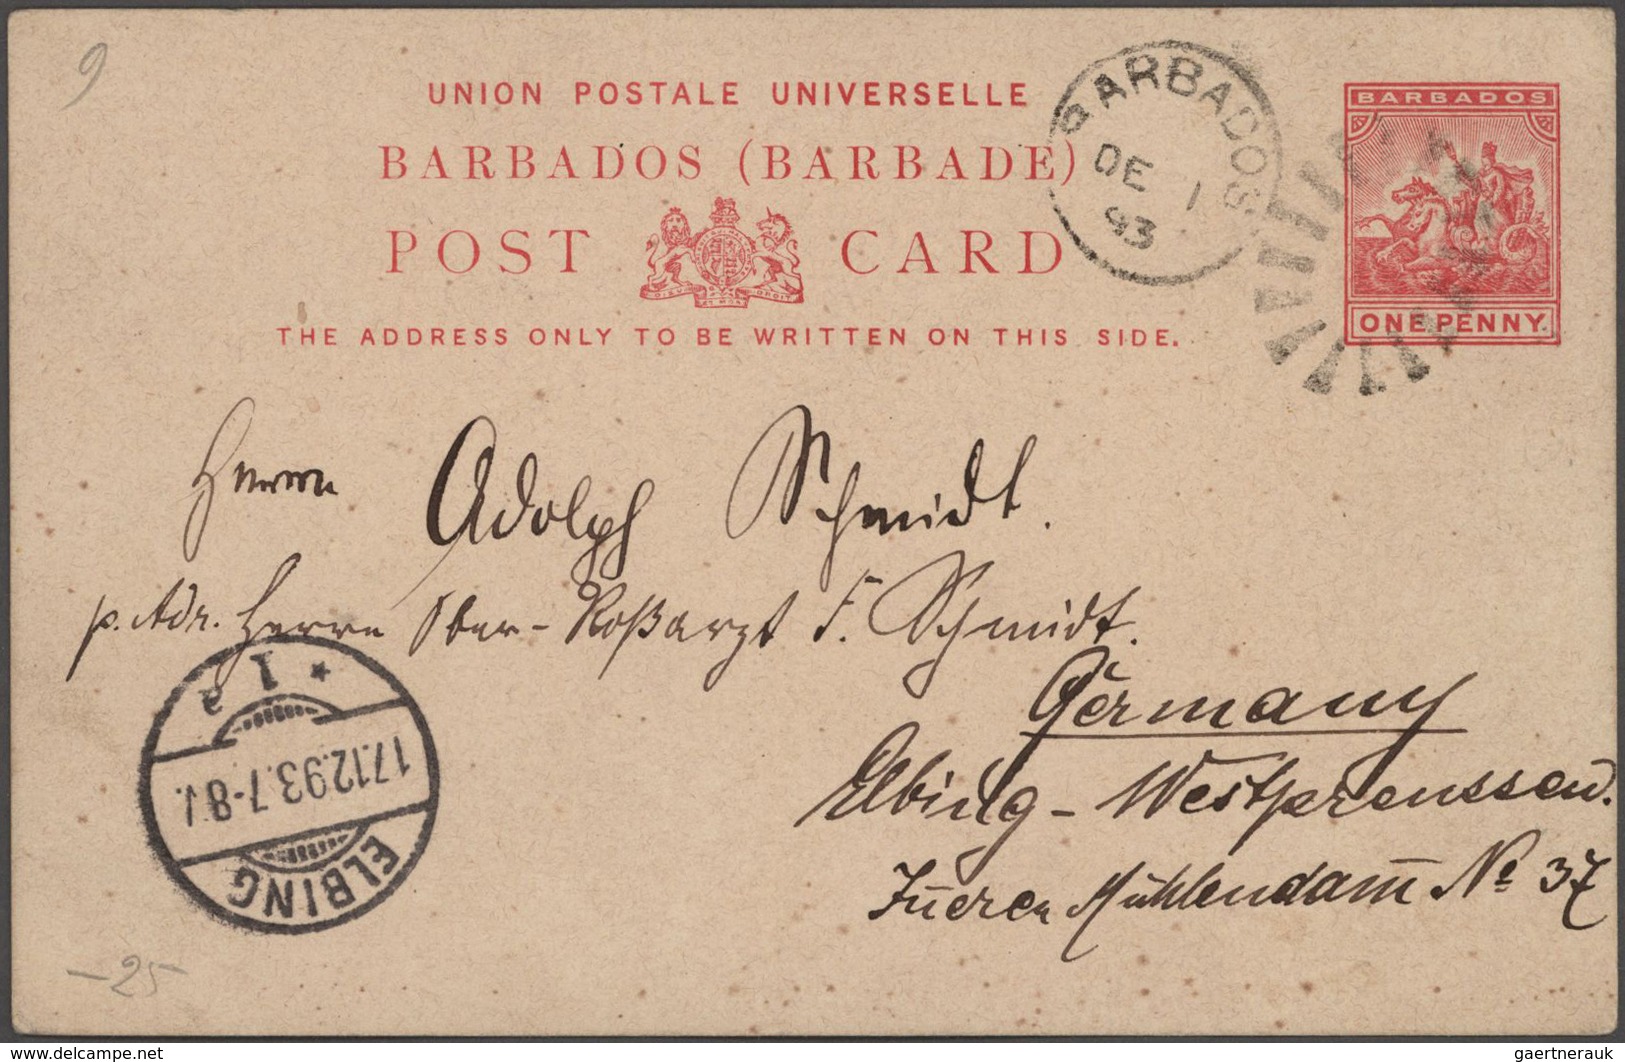 9
UNION POSTALE UNIVERSELLE
BARBADOS (BARBADE)
POST CARD
DIEU ET MON DROIT
THE ADDRESS ONLY TO BE WRITTEN ON THIS SIDE.
BARBADOS
DE 1
93
BARBADOS
ONE PENNY.
Herrn Adolph Schmidt.
p. Adr. Herrn Ober-Roßarzt F. Schmidt.
Germany
Elbing - Westpreussen.
Äuerer Mühlendam̅ No 37
ELBING
17.12.93.7-8V.
* 1 a
-25
www.delcampe.net
gaertnerauk